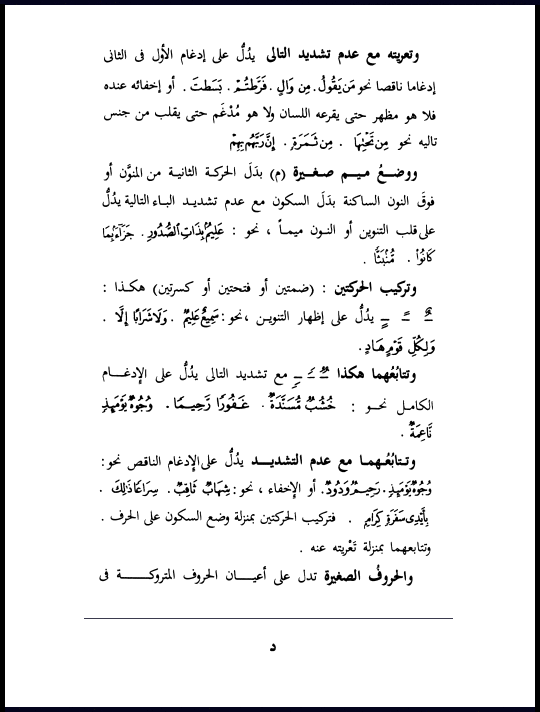 وتعريته مع عدم تشديد التالى يدُلُّ على إدغام الأول فى الثانى
إدغاما ناقصا نحو مَن يَقُولُ. مِن وَالٍ. فَرَّطتُمْ. بَسَطتَ. أو إخفائه عنده
فلا هو مظهر حتى يقرعه اللسان ولا هو مُدْغَم حتى يقلب من جنس
تاليه نحو مِن تَحْتِهَا . مِن ثَمَرَةٍ . إِنَّ رَبَّهُم بِهِمْ
ووضــعُ ميــم صغــيرة (م) بدَلَ الحركـة الثانيـة من المنوَّن أو
فوقَ النون الساكنة بدَلَ السكون مع عدم تشديـد البـاء التالية يدُلُّ
على قلب التنوين أو النـون ميمـاً ، نحو : عَلِيمُۢ بِذَاتِ ٱلصُّدُورِ. جَزَآءَۢ بِمَا
كَانُوا۟ . مُّنۢبَثًّا .
وتركيب الحركتين : (ضمتين أو فتحتين أو كسرتين) هكـذا :
ـٌ ـً ـٍ يدُلُّ على إظهار التنويـن ،نحو: سَمِيعٌ عَلِيمٌ . وَلَا شَرَابًا إِلَّا .
وَلِكُلِّ قَوْمٍ هَادٍ.
وتتابُعُهما هكذا ـٌ ـً ـٍ مع تشديد التالى يدُلُّ على الإدغـــام
الكامـل نحــو : خُشُبٌ مُّسَنَّدَةٌ . غَـفُورًا رَّحِيـمًـا . وُجُوهٌ يَوْمَئِذٍ
نَّاعِمَةٌ .
وتـتابُعُـهمـا مع عدم التشديــد يدُلُّ على الإدغام الناقص نحو:
وُجُوهٌ يَوْمَئِذٍ. رَحِيـمٌ وَدُودٌ. أو الإخفاء ، نحو : شِهَابٌ ثَاقِبٌ. سِرَاعًا ذَٰلِكَ .
بِأَيْدِى سَفَرَةٍ كِرَامٍ . فتركيب الحركتين بمنزلة وضع السكون على الحرف .
وتتابعهما بمنزلة تَعْرِيته عنه .
والحروفُ الصغيرة تدل على أعيــان الحروف المتروكــــة فى
د